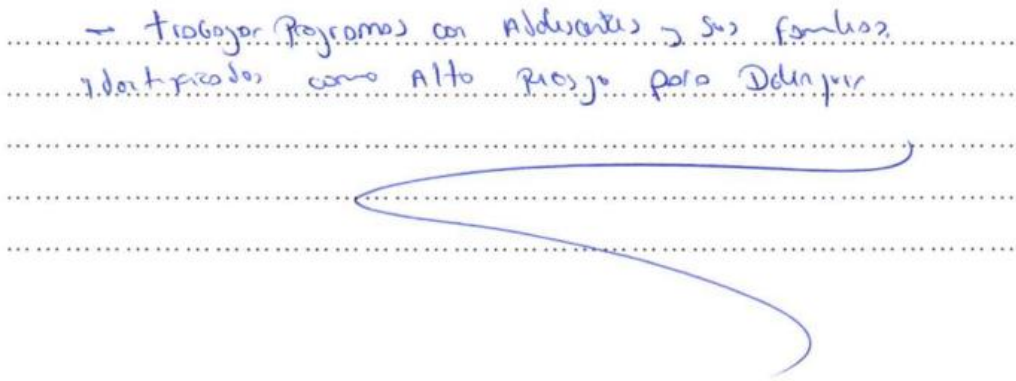 - trabajar Programas con Adolescentes y sus familias.
identificados como Alto Riesgo para Delinquir